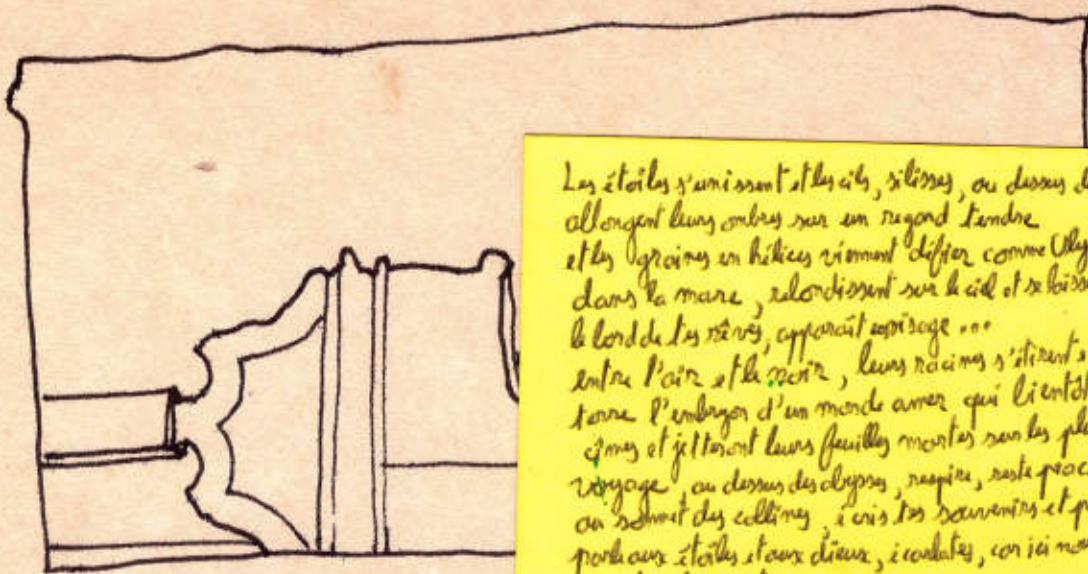 Les étoiles s'unissent et les cils, silisses, au dessus d
allongent leurs ombres sur un regard tendre
et les graines en hélices viennent défier comme Uly
dans la mare, rebondissent sur le ciel et se laisse
le bord de tes rêves, apparaît visage ...
entre l'air et le noir, leurs racines s'étirent e
terre l'embryon d'un monde amer qui bientôt
cîmes et jetteront leurs feuilles mortes sur les pla
voyage, au dessus des abysses, respire, reste
au sommet des collines, écris tes souvenirs et p
parle aux étoiles et aux dieux, écarlates, car ici nou